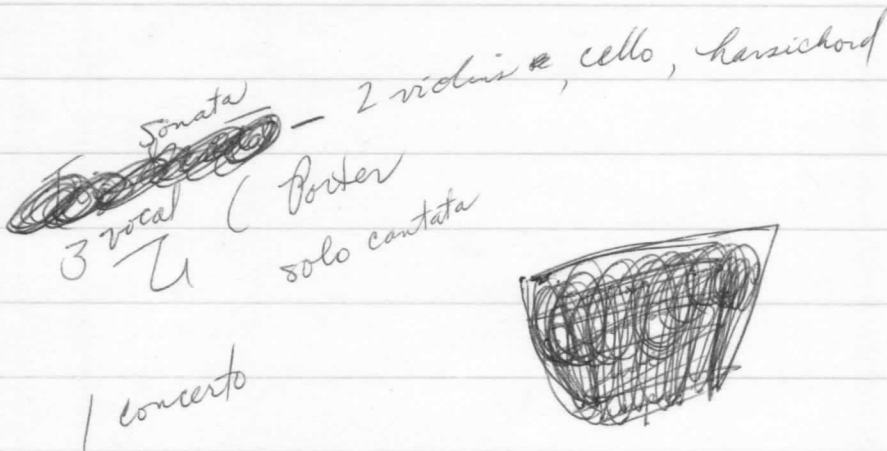 Sonata – 2 violins, cello, harsichord
3 vocal ( Porter
solo cantata
1 concerto